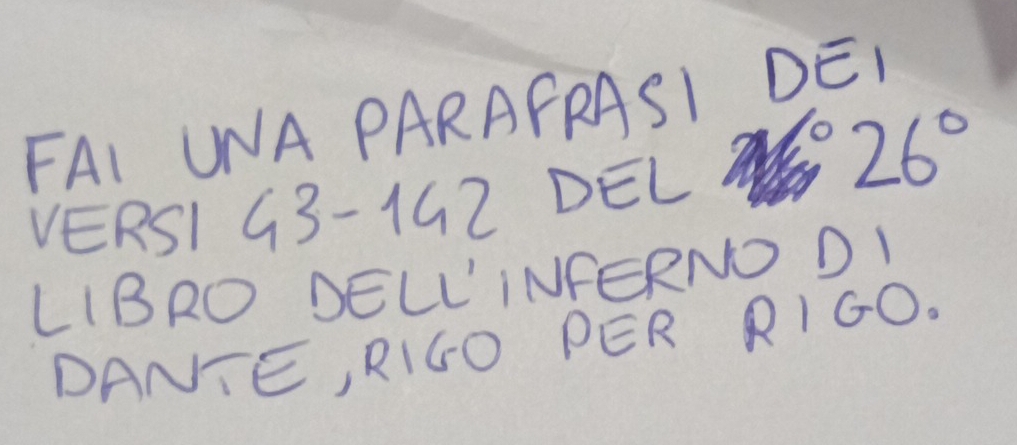 FAI UNA PARAFRASI DEI
VERSI 43-142 DEL 26°
LIBRO DELL'INFERNO DI
DANTE, RIGO PER RIGO.